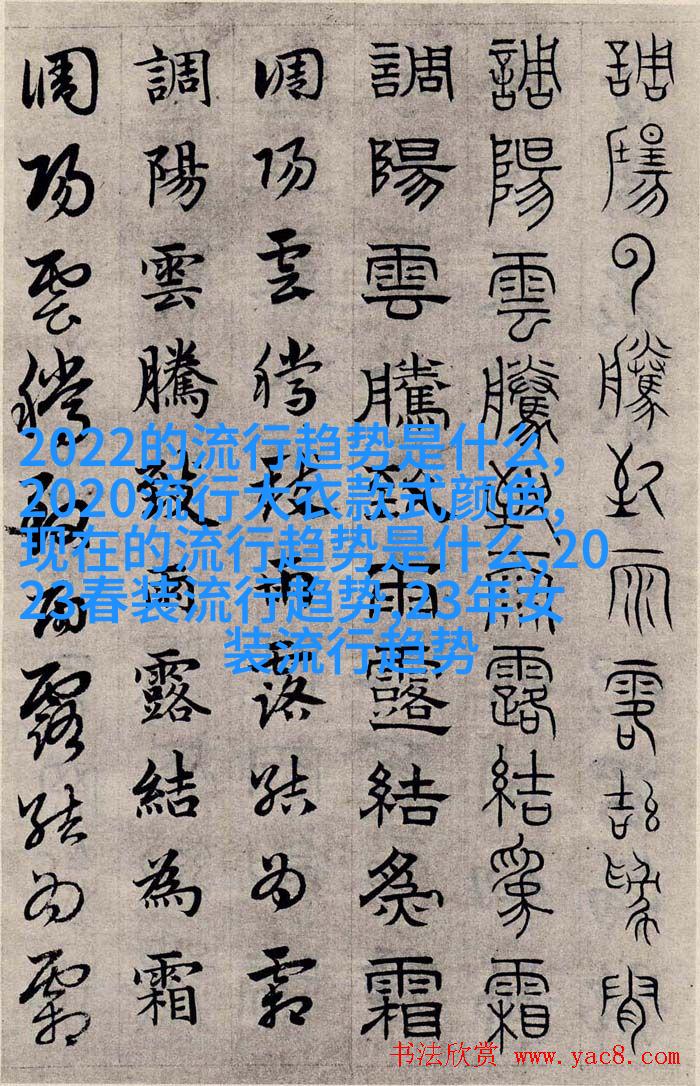 調陽雲騰致雨露結為霜
調陽雲騰致雨露結為霜
調陽雲騰致雨露結為霜
調陽雲騰致雨露結為霜
調陽雲騰致雨露結為霜
調陽雲騰致雨露結為霜
2022的流行趋势是什么,
2020流行大衣款式颜色,
现在的流行趋势是什么,20
23春装流行趋势,23年女
装流行趋势
书法欣赏 www.yac8.com